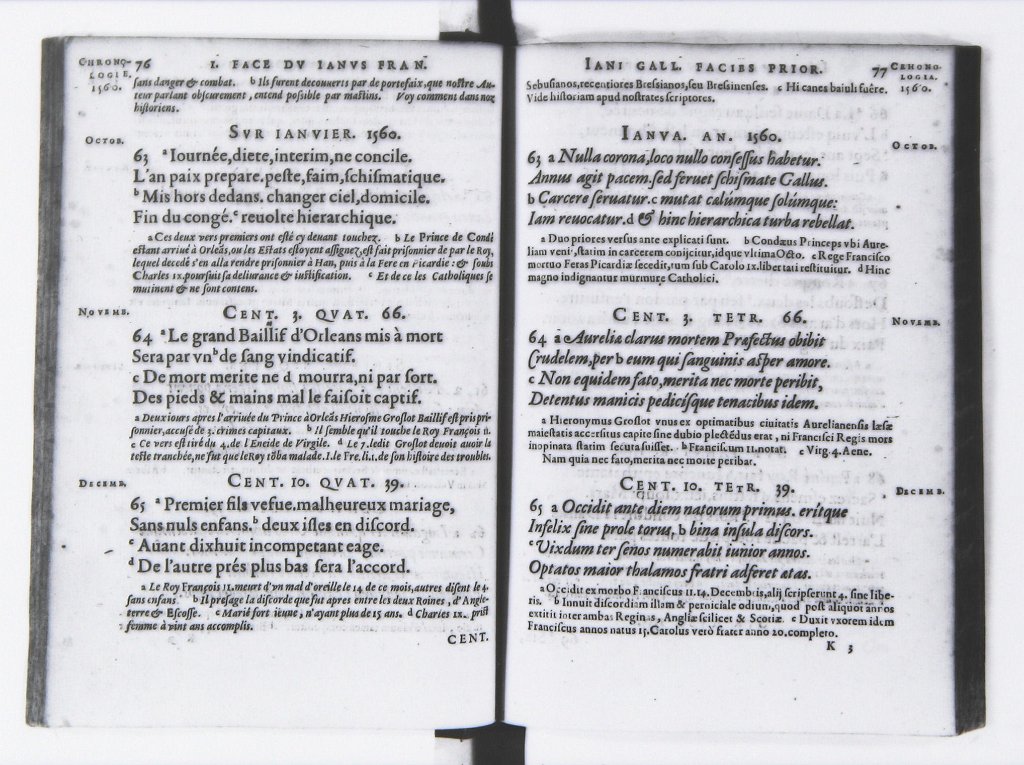 CHRONO-
LOGIE.
1560.
76 I. FACE DV IANVS FRAN.
sans danger & combat. b Ils furent decouuerts par de portefaix, que nostre Au-
teur parlant obscurement, entend possible par mastins. Voy comment dans noz
historiens.
SVR IANVIER. 1560.
OCTOB.
63 a Iournée, diete, interim, ne concile.
L'an paix prepare. peste, faim, schismatique.
b Mis hors dedans. changer ciel, domicile.
Fin du congé. c reuolte hierarchique.
a Ces deux vers premiers ont esté cy deuant touchez. b Le Prince de Condé
estant arriué à Orleãs, ou les Estats estoyent assignez, est fait prisonnier de par le Roy,
lequel decedé s'en alla rendre prisonnier à Han, puis à la Fere en Picardie: & souds
Charles IX. poursuit sa deliurance & iustification. c Et de ce les Catholiques se
mutinent & ne sont contens.
CENT. 3. QVAT. 66.
NOVEMB.
64 a Le grand Baillif d'Orleans mis à mort
Sera par vn b de sang vindicatif.
c De mort merite ne d mourra, ni par sort.
Des pieds & mains mal le faisoit captif.
a Deux iours apres l'arriuée du Prince à Orleãs Hierosme Groslot Baillif est pris pri-
sonnier, accusé de 3. crimes capitaux. b Il semble qu'il touche le Roy François II.
c Ce vers est tiré du 4. de l'Eneide de Virgile. d Le 7. ledit Groslot deuoit auoir la
teste tranchée, ne fut que le Roy tõba malade. I. le Fre. li. 1. de son histoire des troubles.
CENT. 10. QVAT. 39.
DECEMB.
65 a Premier fils vefue. malheureux mariage,
Sans nuls enfans. b deux isles en discord.
c Auant dixhuit incompetant eage.
d De l'autre prés plus bas sera l'accord.
a Le Roy François II. meurt d'vn mal d'oreille le 14 de ce mois, autres disent le 4.
sans enfans. b Il presage la discorde que fut apres entre les deux Roines, d'Angle-
terre & Escosse. c Marié fort ieune, n'ayant plus de 15 ans. d Charles IX. prist
femme à vints ans accomplis.
CENT.
IANI GALL. FACIES PRIOR. 77
CHRONO-
LOGIA.
1560.
Sebusianos, recentiores Bressianos, seu Bressinenses. c Hi canes baiuli fuêre.
Vide historiam apud nostrates scriptores.
IANVA. AN. 1560.
OCTOB.
63 a Nulla corona, loco nullo confessus habetur.
Annus agit pacem. sed feruet schismate Gallus.
b Carcere seruatur. c mutat calúmque solúmque:
Iam reuocatur. d & hinc hierarchica turba rebellat.
a Duo priores versus ante explicati sunt. b Condæus Princeps vbi Aure-
liam venit, statim in carcerem conijcitur, idque vltima Octo. c Rege Francisco
mortuo Feras Picardiæ secedit, tum sub Carolo IX. libertati restituitur. d Hinc
magno indignantur murmure Catholici.
CENT. 3. TETR. 66.
NOVEMB.
64 a Aurelia clarus mortem Præfectus obibit
Crudelem, per b eum qui sanguinis asper amore.
c Non equidem fato, merita nec morte peribit,
Detentus manicis pedicísque tenacibus idem.
a Hieronymus Groslot vnus ex optimatibus ciuitatis Aurelianensis læsæ
maiestatis accersitus capite sine dubio plectẽdus erat, ni Francisci Regis mors
inopinata statim secuta fuisset. b Franciscum II. notat. c Virg. 4. Aene.
Nam quia nec fato, merita nec morte peribat.
CENT. 10. TETR. 39.
DECEMB.
65 a Occidit ante diem natorum primus. eritque
Infelix sine prole torus, b bina insula discors.
c Vixdum ter senos numerabit iunior annos.
Optatos maior thalamos fratri adferet ætas.
a Occidit ex morbo Franciscus II. 14. Decembris, alij scripserunt 4. sine libe-
ris. b Innuit discordiam illam & perniciale odium, quod post aliquot annos
extitit inter ambas Reginas, Angliæ scilicet & Scotiæ. c Duxit vxorem idem
Franciscus annos natus 15. Carolus verò frater anno 20. completo.
K 3